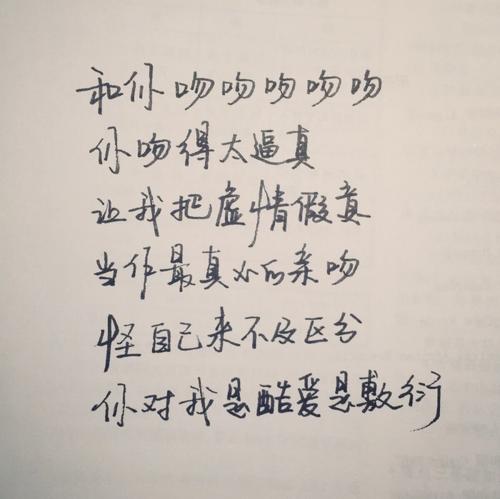 和你吻吻吻吻吻
你吻得太逼真
让我把虚情假意
当作最真心的亲吻
怪自己来不及区分
你对我是酷爱是敷衍